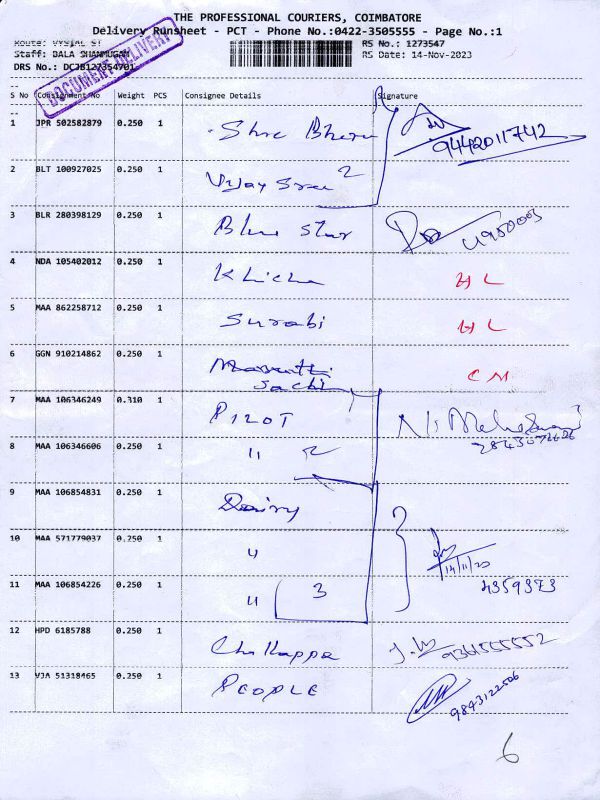 THE PROFESSIONAL COURIERS, COIMBATORE
Delivery Runsheet - PCT - Phone No.:0422-3505555 - Page No.:1
Route:
RS No.: 1273547
Staff: BALA SHANMUGAM
RS Date: 14-Nov-2023
DRS No.: DCJB127354701
DOCUMENT DELIVERY
S No Consignment No Weight PCS Consignee Details Signature
1 JPR 502582879 0.250 1 Shree
9442011742
2 BLT 100927025 0.250 1 Vijay Sree 2
3 BLR 280398129 0.250 1 Blue Star
4 NDA 105402012 0.250 1 Khicha HL
5 MAA 862258712 0.250 1 Surabi HL
6 GGN 910214862 0.250 1 Sachi CM
7 MAA 106346249 0.310 1 PILOT
8 MAA 106346606 0.250 1 11 2
9 MAA 106854831 0.250 1 Dairy
10 MAA 571779037 0.250 1 11
14/11/23
11 MAA 106854226 0.250 1 11 3 4359373
12 HPD 6185788 0.250 1 Chellappa
13 VJA 51318465 0.250 1 PEOPLE
9843122506
6